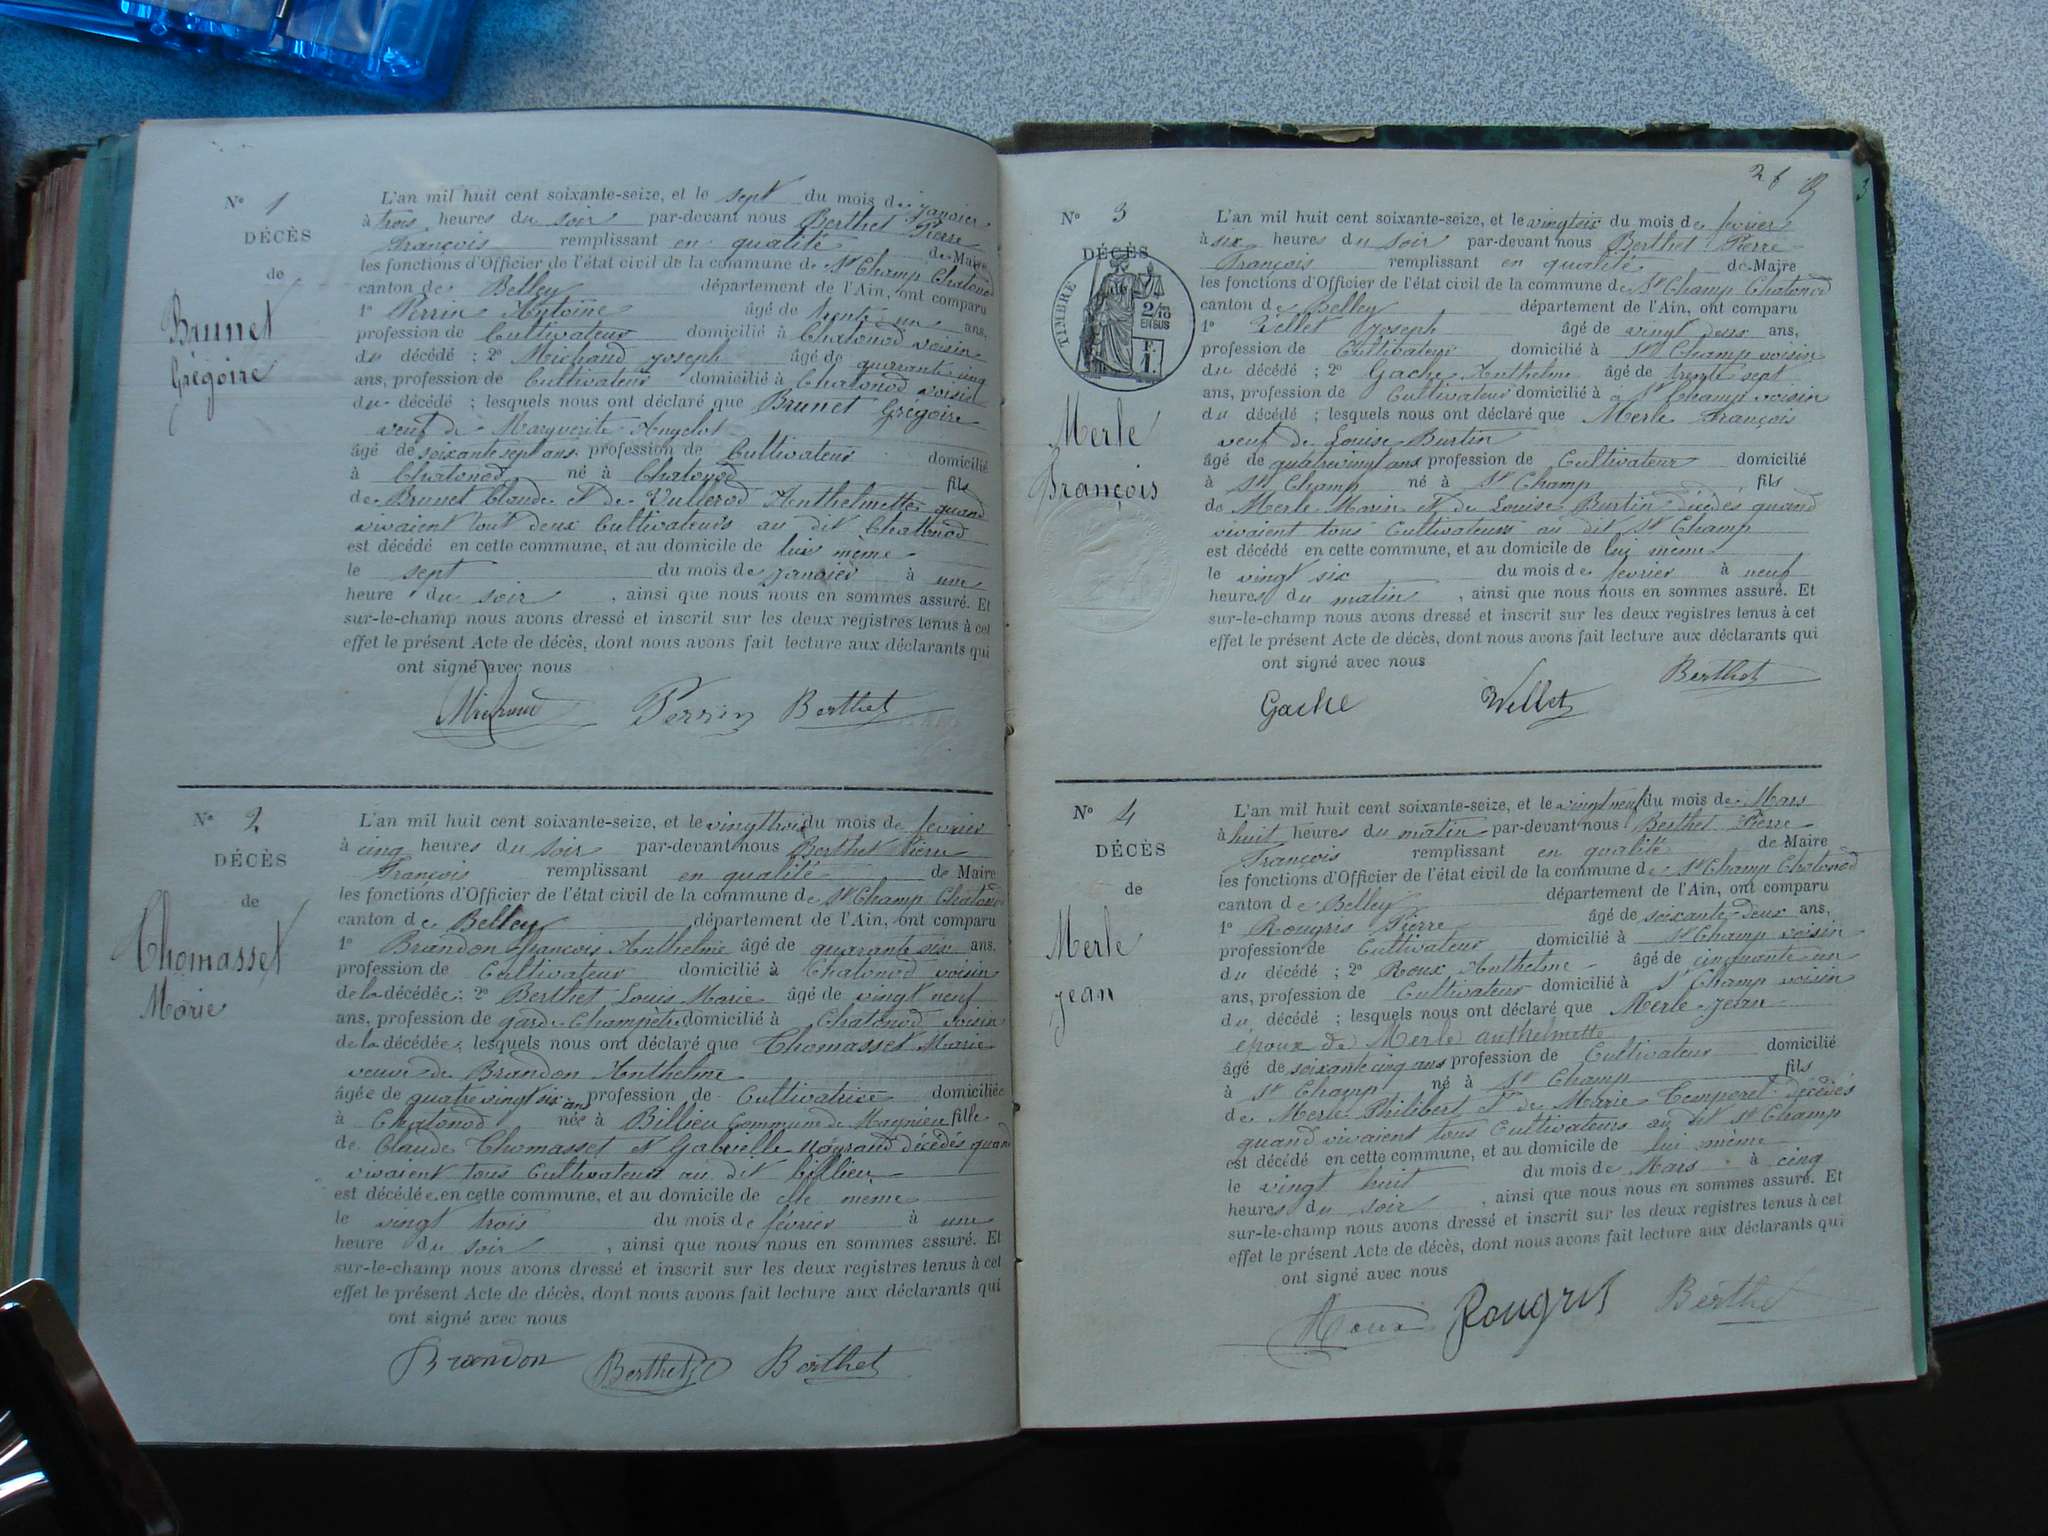 N° 1
DÉCÈS
de
Brunet
Grégoire
L'an mil huit cent soixante-seize, et le sept du mois de janvier
à trois heures du soir par-devant nous Berthet Pierre
François remplissant en qualité de Maire
les fonctions d'Officier de l'état civil de la commune de St Champ Chatonod
canton de Belley département de l'Ain, ont comparu
1° Perrin Antoine âgé de trente un ans,
profession de Cultivateur domicilié à Chatonod voisin
du décédé ; 2° Michaud Joseph âgé de quarante cinq
ans, profession de Cultivateur domicilié à Chatonod voisin
du décédé ; lesquels nous ont déclaré que Brunet Grégoire
veuf de Marguerite Angelot
âgé de soixante sept ans profession de Cultivateur domicilié
à Chatonod né à Chatonod fils
de Brunet Claude et de Vullerod Anthelmette quand
vivaient tout deux Cultivateurs au dit Chatonod
est décédé en cette commune, et au domicile de lui même
le sept du mois de janvier à une
heure du soir , ainsi que nous nous en sommes assuré. Et
sur-le-champ nous avons dressé et inscrit sur les deux registres tenus à cet
effet le présent Acte de décès, dont nous avons fait lecture aux déclarants qui
ont signé avec nous
Michaud Perrin Berthet
N° 2
DÉCÈS
de
Thomasset
Marie
L'an mil huit cent soixante-seize, et le vingt trois du mois de fevrier
à cinq heures du soir par-devant nous Berthet Pierre
François remplissant en qualité de Maire
les fonctions d'Officier de l'état civil de la commune de St Champ Chatonod
canton de Belley département de l'Ain, ont comparu
1° Brandon François Anthelme âgé de quarante six ans,
profession de Cultivateur domicilié à Chatonod voisin
de la décédée ; 2° Berthet Louis Marie âgé de vingt neuf
ans, profession de garde Champètre domicilié à Chatonod voisin
de la décédée ; lesquels nous ont déclaré que Thomasset Marie
veuve de Brandon Anthelme
âgée de quatre vingt six ans profession de Cultivatrice domiciliée
à Chatonod née à Billieu Commune de Magnieu fille
de Claude Thomasset et Gabrielle décédés quand
vivaient tous Cultivateurs au dit billieu
est décédée en cette commune, et au domicile de elle meme
le vingt trois du mois de février à une
heure du soir , ainsi que nous nous en sommes assuré. Et
sur-le-champ nous avons dressé et inscrit sur les deux registres tenus à cet
effet le présent Acte de décès, dont nous avons fait lecture aux déclarants qui
ont signé avec nous
Brandon Berthet Berthet
3
N° 3
DÉCÈS
TIMBRE
2/10
EN SUS
F.
1.
Merle
François
L'an mil huit cent soixante-seize, et le vingt six du mois de fevrier
à six heures du soir par-devant nous Berthet Pierre
François remplissant en qualité de Maire
les fonctions d'Officier de l'état civil de la commune de St Champ Chatonod
canton de Belley département de l'Ain, ont comparu
1° Vellet Joseph âgé de vingt deux ans,
profession de Cultivateur domicilié à St Champ voisin
du décédé ; 2° Gache Anthelme âgé de trente sept
ans, profession de Cultivateur domicilié à St Champ voisin
du décédé ; lesquels nous ont déclaré que Merle François
veuf de Louise Burtin
âgé de quatre vingt ans profession de Cultivateur domicilié
à St Champ né à St Champ fils
de Merle Marin et de Louise Burtin décédés quand
vivaient tous Cultivateurs au dit St Champ
est décédé en cette commune, et au domicile de lui même
le vingt six du mois de fevrier à neuf
heures du matin , ainsi que nous nous en sommes assuré. Et
sur-le-champ nous avons dressé et inscrit sur les deux registres tenus à cet
effet le présent Acte de décès, dont nous avons fait lecture aux déclarants qui
ont signé avec nous
Gache Vellet Berthet
N° 4
DÉCÈS
de
Merle
jean
L'an mil huit cent soixante-seize, et le vingt neuf du mois de Mars
à huit heures du matin par-devant nous Berthet Pierre
François remplissant en qualité de Maire
les fonctions d'Officier de l'état civil de la commune de St Champ Chatonod
canton de Belley département de l'Ain, ont comparu
1° Rougris Pierre âgé de soixante deux ans,
profession de Cultivateur domicilié à St Champ voisin
du décédé ; 2° Roux Anthelme âgé de cinquante un
ans, profession de Cultivateur domicilié à St Champ voisin
du décédé ; lesquels nous ont déclaré que Merle Jean
époux de Merle anthelmette
âgé de soixante cinq ans profession de Cultivateur domicilié
à St Champ né à St Champ fils
de Merle Philibert et de Marie Temporel décédés
quand vivaient tous Cultivateurs au dit St Champ
est décédé en cette commune, et au domicile de lui même
le vingt huit du mois de Mars à cinq
heures du soir , ainsi que nous nous en sommes assuré. Et
sur-le-champ nous avons dressé et inscrit sur les deux registres tenus à cet
effet le présent Acte de décès, dont nous avons fait lecture aux déclarants qui
ont signé avec nous
Roux Rougris Berthet